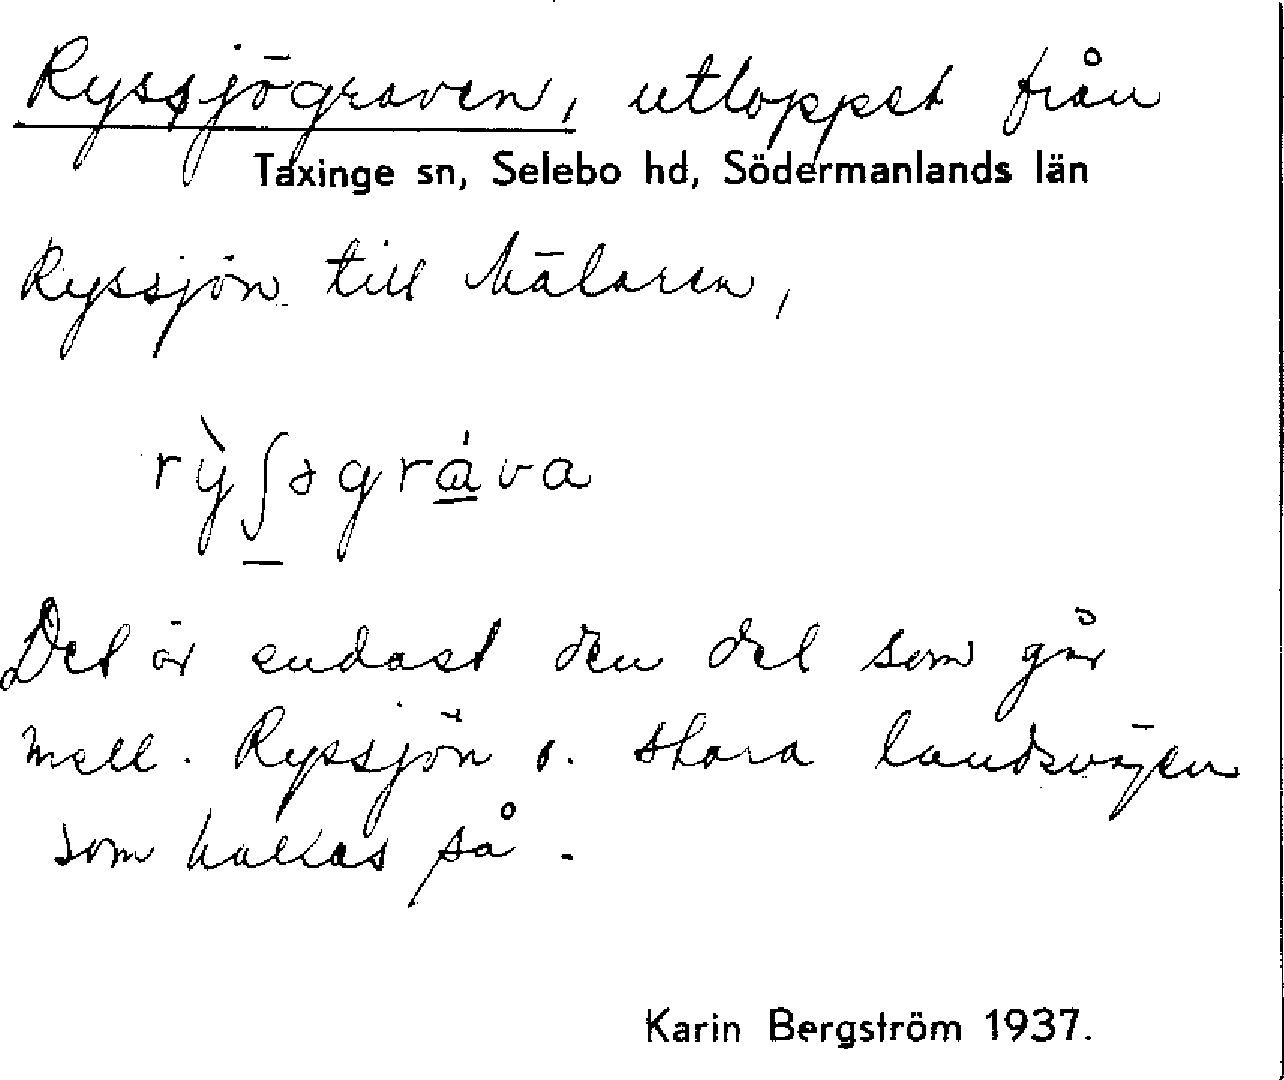 Ryssjögraven, utloppet från
Taxinge sn, Selebo hd, Södermanlands län
Ryssjön till Mälaren,
rỳʃəgrá̲va
Det är endast den del som går
mell. Ryssjön o. stora landsvägen
som kallas så.
Karin Bergström 1937.